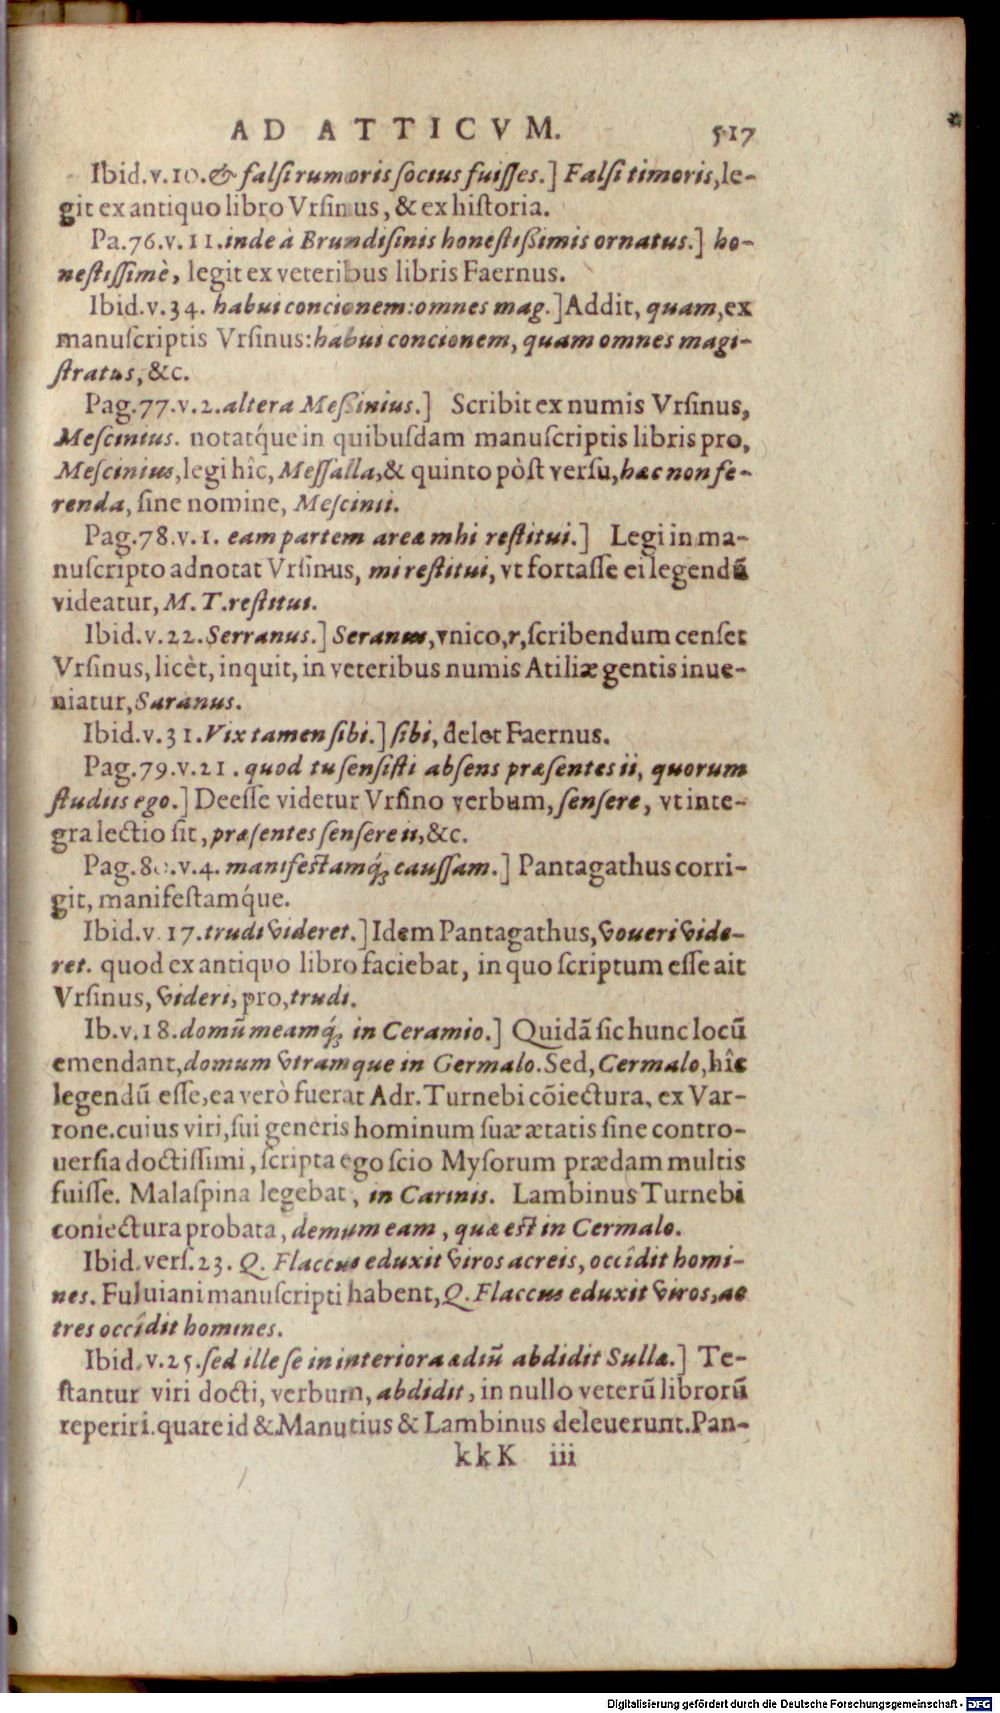 AD ATTICVM. 517
Ibid.v.10.& falſi rumoris ſocius fuiſſes.] Falſi timoris, le-
git ex antiquo libro Vrſinus, & ex hiſtoria.
Pa.76.v.11.inde à Brundiſinis honeſtißimis ornatus.] ho-
neſtiſſimè, legit ex veteribus libris Faernus.
Ibid.v.34. habui concionem:omnes mag.] Addit, quam, ex
manuſcriptis Vrſinus: habui concionem, quam omnes magi-
ſtratus, &c.
Pag.77.v.2.altera Meßinius.] Scribit ex numis Vrſinus,
Meſcinius. notatq́ue in quibuſdam manuſcriptis libris pro,
Meſcinius, legi hîc, Meſſalla, & quinto pòſt verſu, hæc non fe-
renda, ſine nomine, Meſcinii.
Pag.78.v.1. eam partem areæ mhi reſtitui.] Legi in ma-
nuſcripto adnotat Vrſinus, mi reſtitui, vt fortaſſe ei legendū
videatur, M. T. reſtitui.
Ibid.v.22.Serranus.] Seranus, vnico, r, ſcribendum cenſet
Vrſinus, licèt, inquit, in veteribus numis Atiliæ gentis inue-
niatur, Saranus.
Ibid.v.31.Vix tamen ſibi.] ſibi, delet Faernus.
Pag.79.v.21. quod tu ſenſiſti abſens præſentes ii, quorum
ſtudiis ego.] Deeſſe videtur Vrſino verbum, ſenſere, vt inte-
gra lectio ſit, præſentes ſenſere ii, &c.
Pag.80.v.4. manifeſtamq́; cauſſam.] Pantagathus corri-
git, manifeſtamq́ue.
Ibid.v.17.trudi videret.] Idem Pantagathus, voueri vide-
ret. quod ex antiquo libro faciebat, in quo ſcriptum eſſe ait
Vrſinus, videri, pro, trudi.
Ib.v.18.domū meamq́; in Ceramio.] Quidā ſic hunc locū
emendant, domum vtramque in Germalo. Sed, Cermalo, hîc
legendū eſſe, ea verò fuerat Adr. Turnebi cōiectura, ex Var-
rone. cuius viri, ſui generis hominum ſuæ ætatis ſine contro-
uerſia doctiſſimi, ſcripta ego ſcio Myſorum prædam multis
fuiſſe. Malaſpina legebat, in Carinis. Lambinus Turnebi
coniectura probata, demum eam, quæ eſt in Cermalo.
Ibid.verſ.23. Q. Flaccus eduxit viros acreis, occidit homi-
nes. Fuluiani manuſcripti habent, Q. Flaccus eduxit viros, ac
tres occidit homines.
Ibid.v.25.ſed ille ſe in interiora ædiū abdidit Sullæ.] Te-
ſtantur viri docti, verbum, abdidit, in nullo veterū librorū
reperiri. quare id & Manutius & Lambinus deleuerunt. Pan-
kkK iii
Digitalisierung gefördert durch die Deutsche Forschungsgemeinschaft - DFG